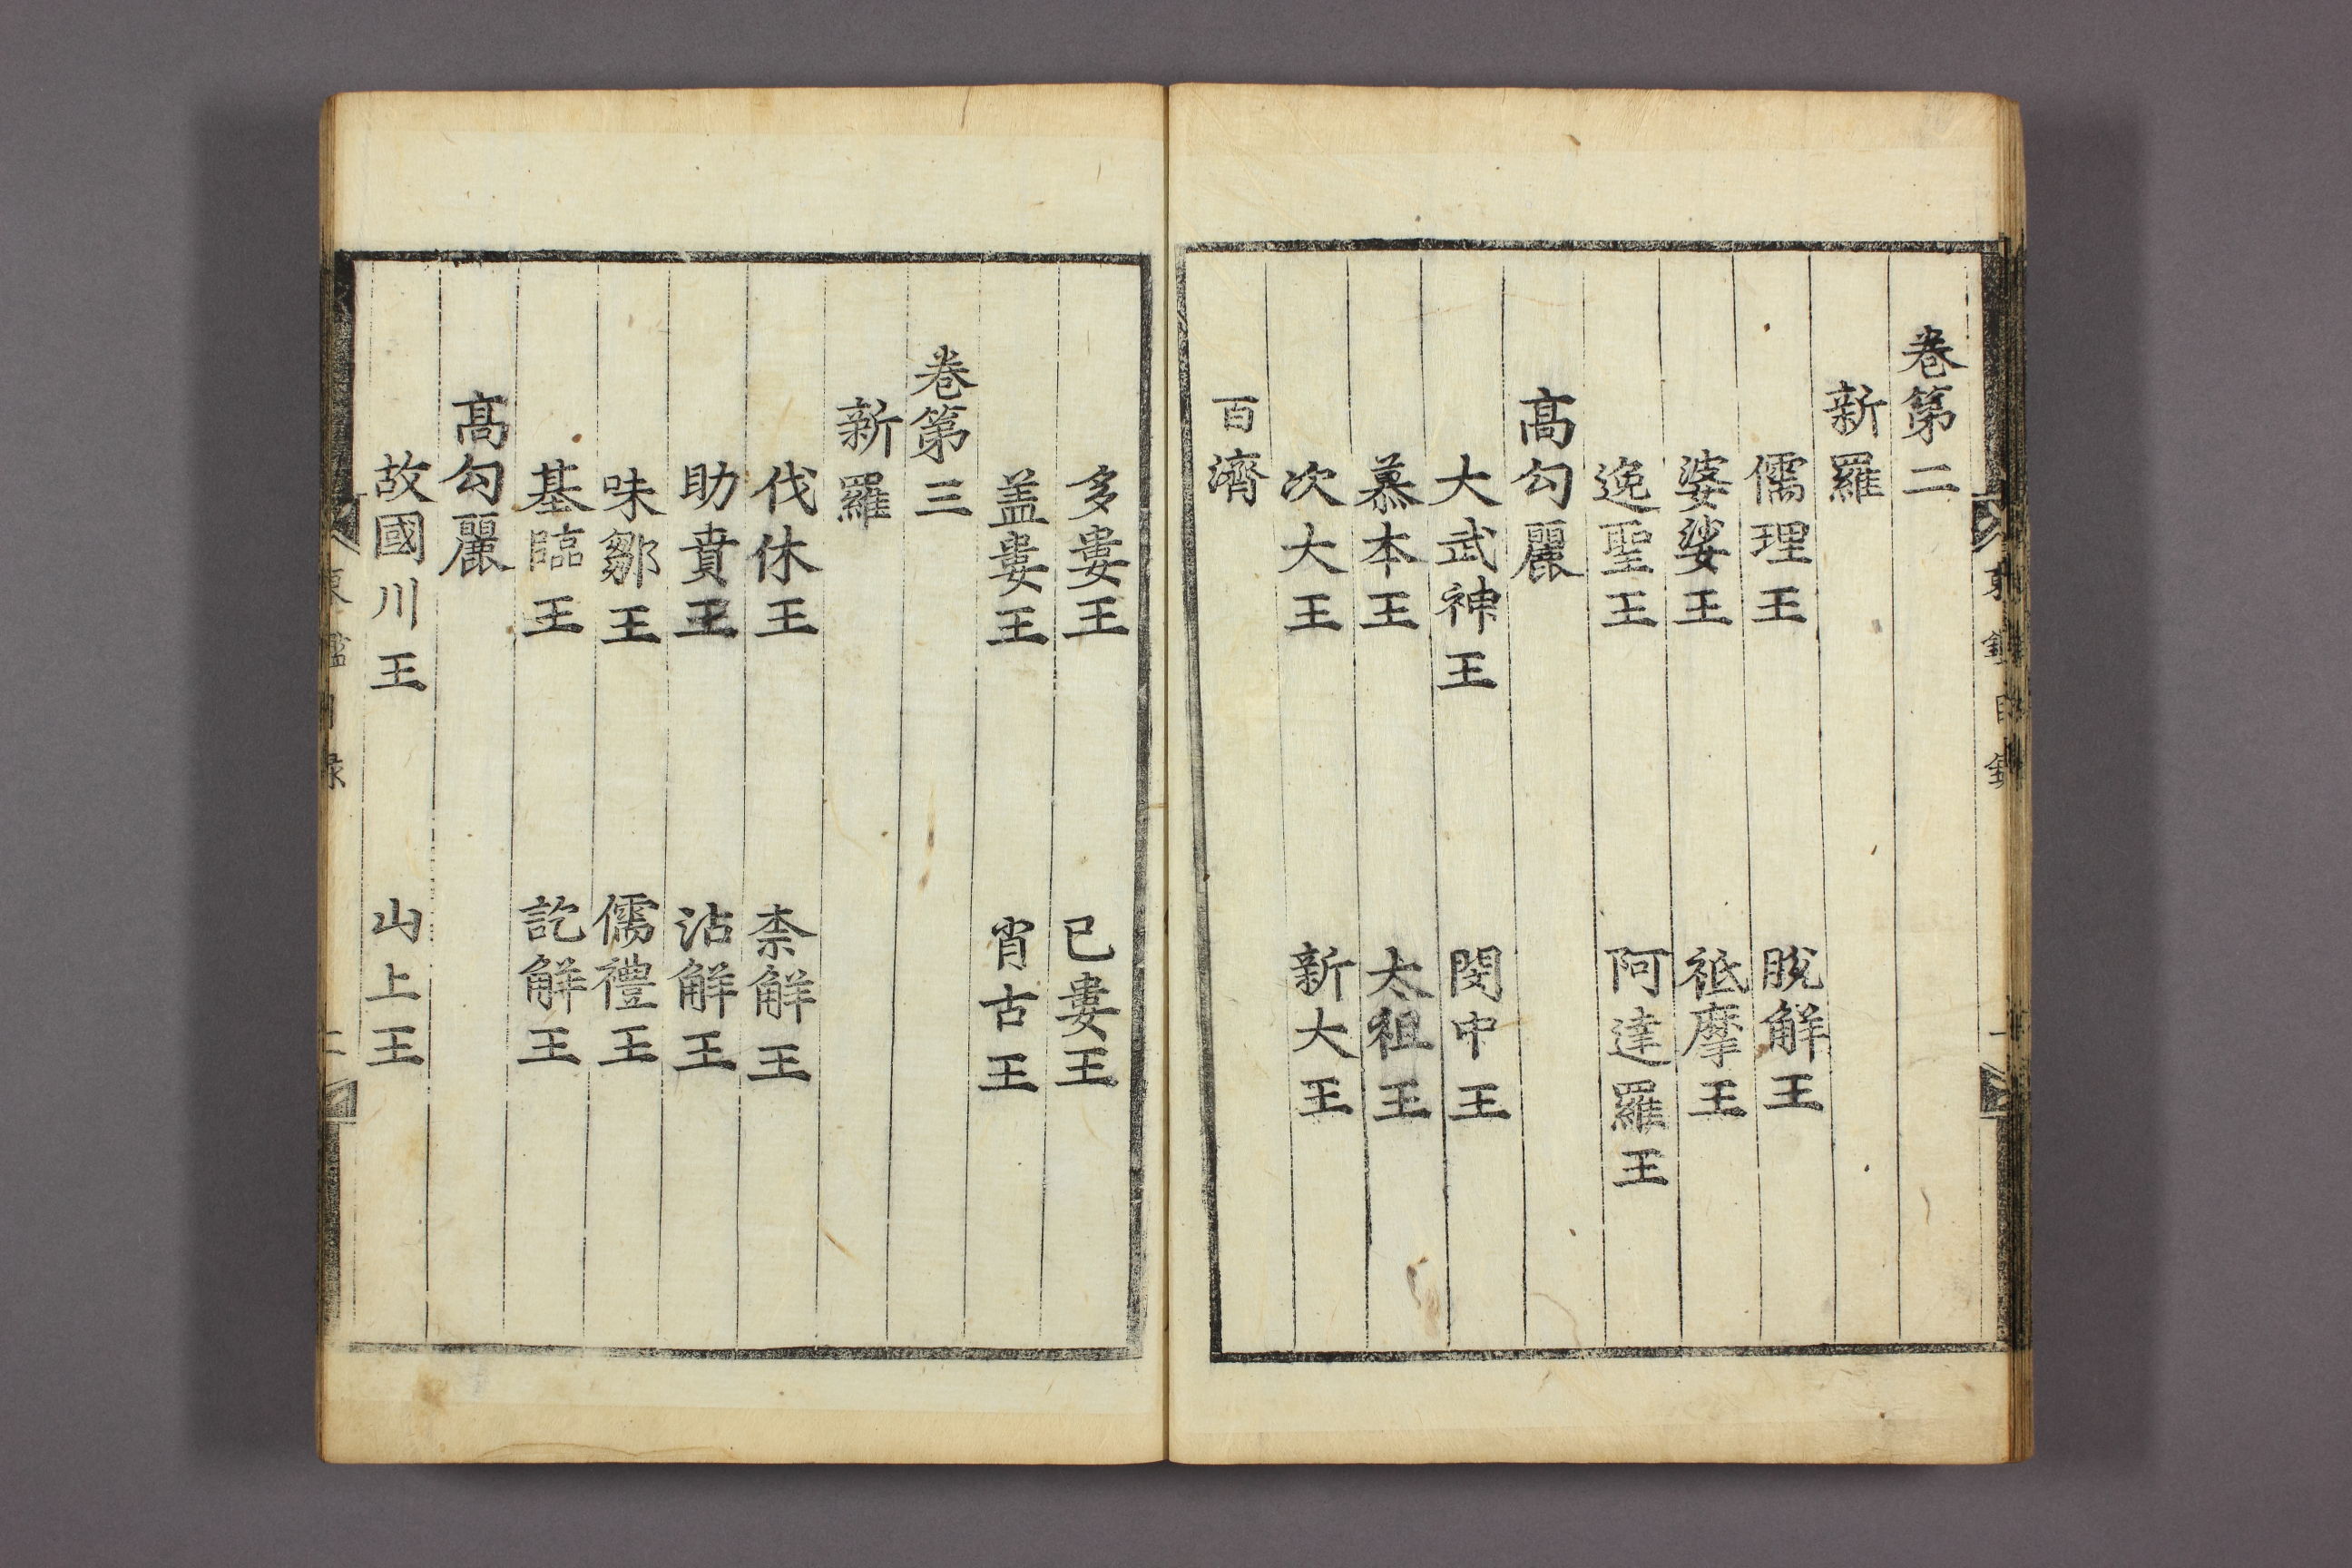 卷第二
新羅
儒理王 脫解王
婆娑王 祗摩王
逸聖王 阿達羅王
高勾麗
大武神王 閔中王
慕本王 太祖王
次大王 新大王
百濟
多婁王 已婁王
盖婁王 肖古王
卷第三
新羅
伐休王 柰解王
助賁王 沾解王
味鄒王 儒禮王
基臨王 訖解王
高勾麗
故國川王 山上王